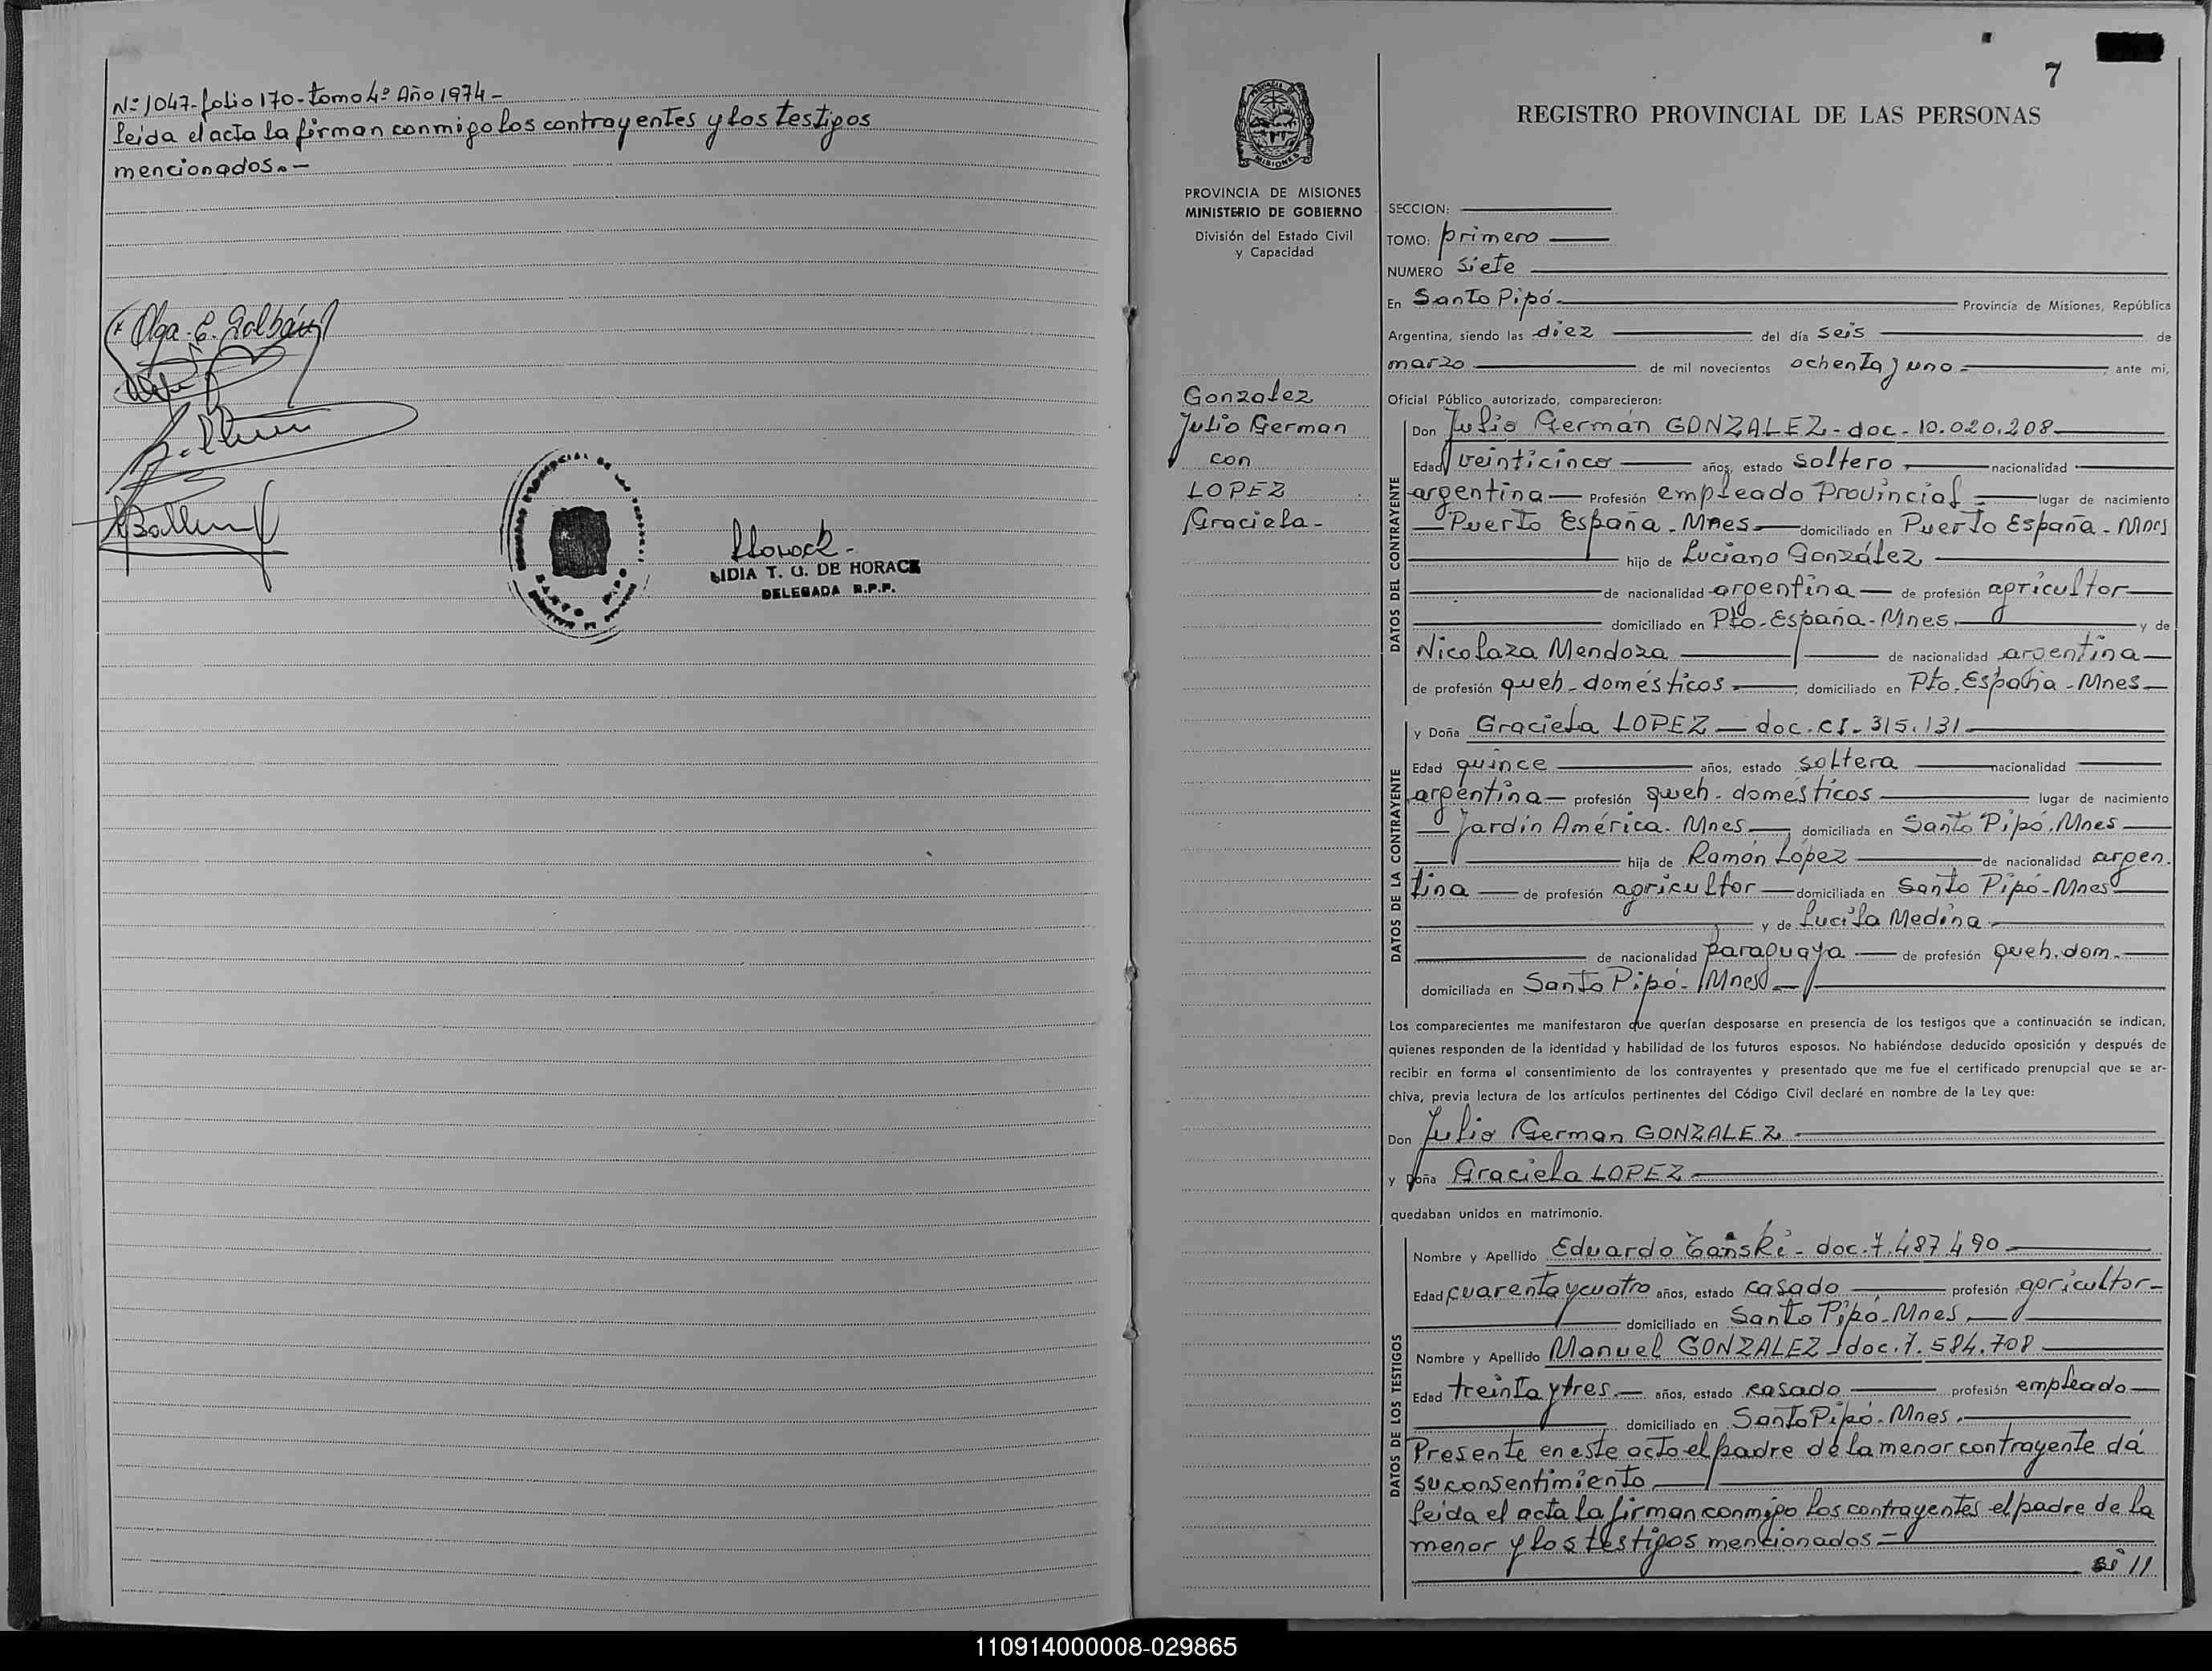 Nº 1047-folio 170-tomo 4º Año 1974-
leida el acta la firman conmigo los contrayentes y los testigos
mencionados.-
Olga E. Galbán
Horack-
LIDIA T. G. DE HORACK
DELEGADA R.P.P.
7
REGISTRO PROVINCIAL DE LAS PERSONAS
MISIONES
PROVINCIA DE MISIONES
MINISTERIO DE GOBIERNO
División del Estado Civil
y Capacidad
Gonzalez
Julio German
con
LOPEZ
Graciela-
SECCION:
TOMO: primero
NUMERO siete
En Santo Pipó- Provincia de Misiones, República
Argentina, siendo las diez del día seis de
marzo de mil novecientos ochenta y uno - ante mi,
Oficial Público autorizado, comparecieron:
DATOS DEL CONTRAYENTE
Don Julio Germán GONZALEZ-doc-10.020.208-
Edad veinticinco años, estado soltero nacionalidad
argentina Profesión empleado Provincial lugar de nacimiento
Puerto España-Mnes domiciliado en Puerto España-Mnes
hijo de Luciano González
de nacionalidad argentina de profesión agricultor
domiciliado en Pto-España-Mnes y de
Nicolaza Mendoza de nacionalidad argentina
de profesión queh-domésticos domiciliado en Pto. España-Mnes
DATOS DE LA CONTRAYENTE
y Doña Graciela LOPEZ-doc.CI-315.131
Edad quince años, estado soltera nacionalidad
argentina profesión queh-domésticos lugar de nacimiento
Jardín América-Mnes domiciliada en Santo Pipó.Mnes
hija de Ramón López de nacionalidad argen.
tina de profesión agricultor domiciliada en Santo Pipó-Mnes
y de Lucila Medina
de nacionalidad paraguaya de profesión queh.dom.
domiciliada en Santo Pipó-Mnes
Los comparecientes me manifestaron que querían desposarse en presencia de los testigos que a continuación se indican,
quienes responden de la identidad y habilidad de los futuros esposos. No habiéndose deducido oposición y después de
recibir en forma el consentimiento de los contrayentes y presentado que me fue el certificado prenupcial que se ar-
chiva, previa lectura de los artículos pertinentes del Código Civil declaré en nombre de la Ley que:
Don Julio German GONZALEZ
y Doña Graciela LOPEZ
quedaban unidos en matrimonio.
DATOS DE LOS TESTIGOS
Nombre y Apellido Eduardo doc.7.487.490
Edad cuarenta y cuatro años, estado casado profesión agricultor
domiciliado en Santo Pipó-Mnes
Nombre y Apellido Manuel GONZALEZ doc.7.584.708
Edad treinta y tres años, estado casado profesión empleado
domiciliado en Santo Pipó-Mnes.
Presente en este acto el padre de la menor contrayente dá
su consentimiento
leida el acta la firman conmigo los contrayentes el padre de la
menor y los testigos mencionados-
110914000008-029865